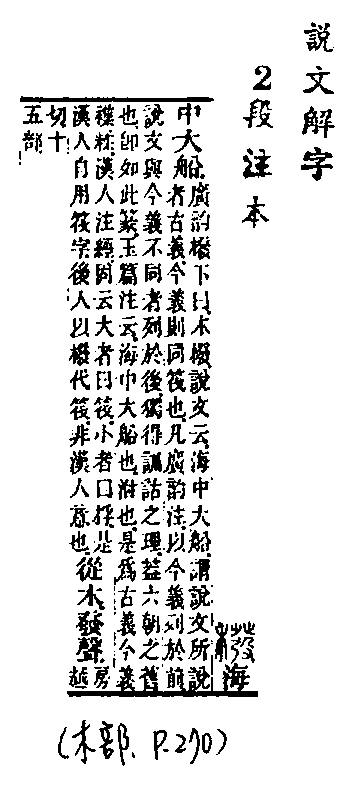 說文解字
2段注本
橃海
中大船廣韵橃下曰木橃說文云海中大船謂說文所說
者古義今義則同筏也凡廣韵注以今義列於前
說文與今義不同者列於後獨得訓詁之理葢六朝之舊
也卽如此篆玉篇注云海中大船也泭也是爲古義今義
襍糅漢人注經固云大者曰筏小者曰桴是
漢人自用筏字後人以橃代筏非漢人意也從木發聲房越
切十
五部
(木部、P.270)